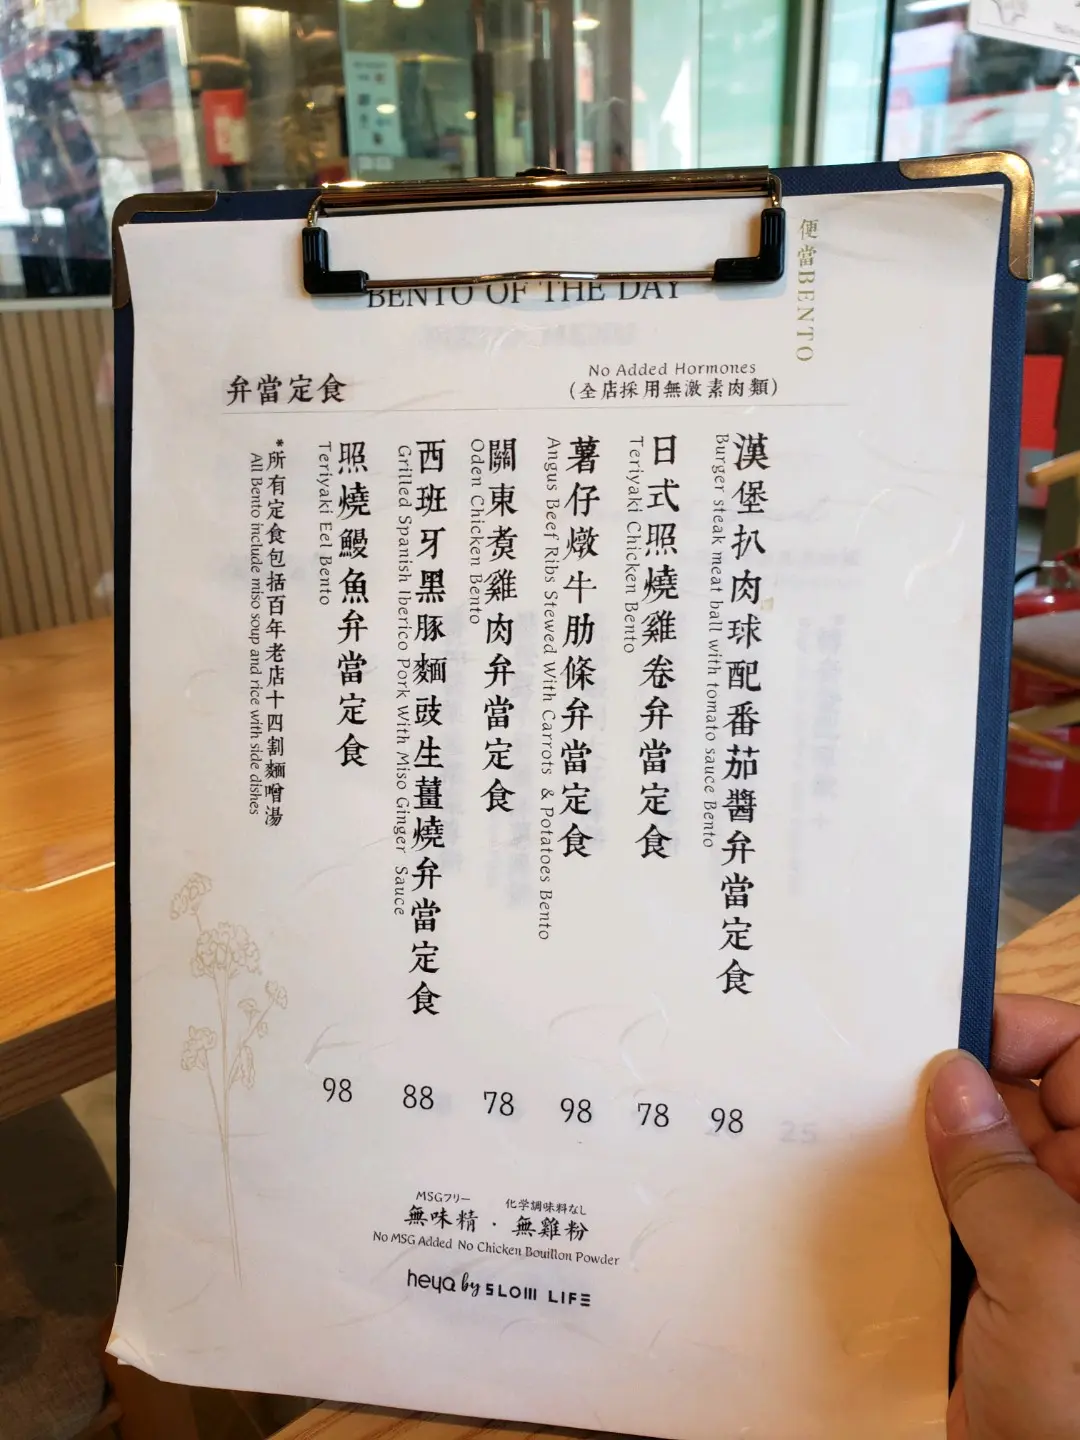 BENTO OF THE DAY
便當BENTO
No Added Hormones
弁當定食
(全店採用無激素肉類)
漢堡扒肉球配番茄醬弁當定食
Burger steak meat ball with tomato sauce Bento
日式照燒雞卷弁當定食
Teriyaki Chicken Bento
薯仔燉牛肋條弁當定食
Angus Beef Ribs Stewed With Carrots & Potatoes Bento
關東煑雞肉弁當定食
Oden Chicken Bento
西班牙黑豚麵豉生薑燒弁當定食
Grilled Spanish Iberico Pork With Miso Ginger Sauce
照燒鰻魚弁當定食
Teriyaki Eel Bento
*所有定食包括百年老店十四割麵噌湯
All Bento include miso soup and rice with side dishes
98 88 78 98 78 98
MSGフリー 化学調味料なし
無味精 · 無雞粉
No MSG Added No Chicken Bouillon Powder
heya by SLOW LIFE